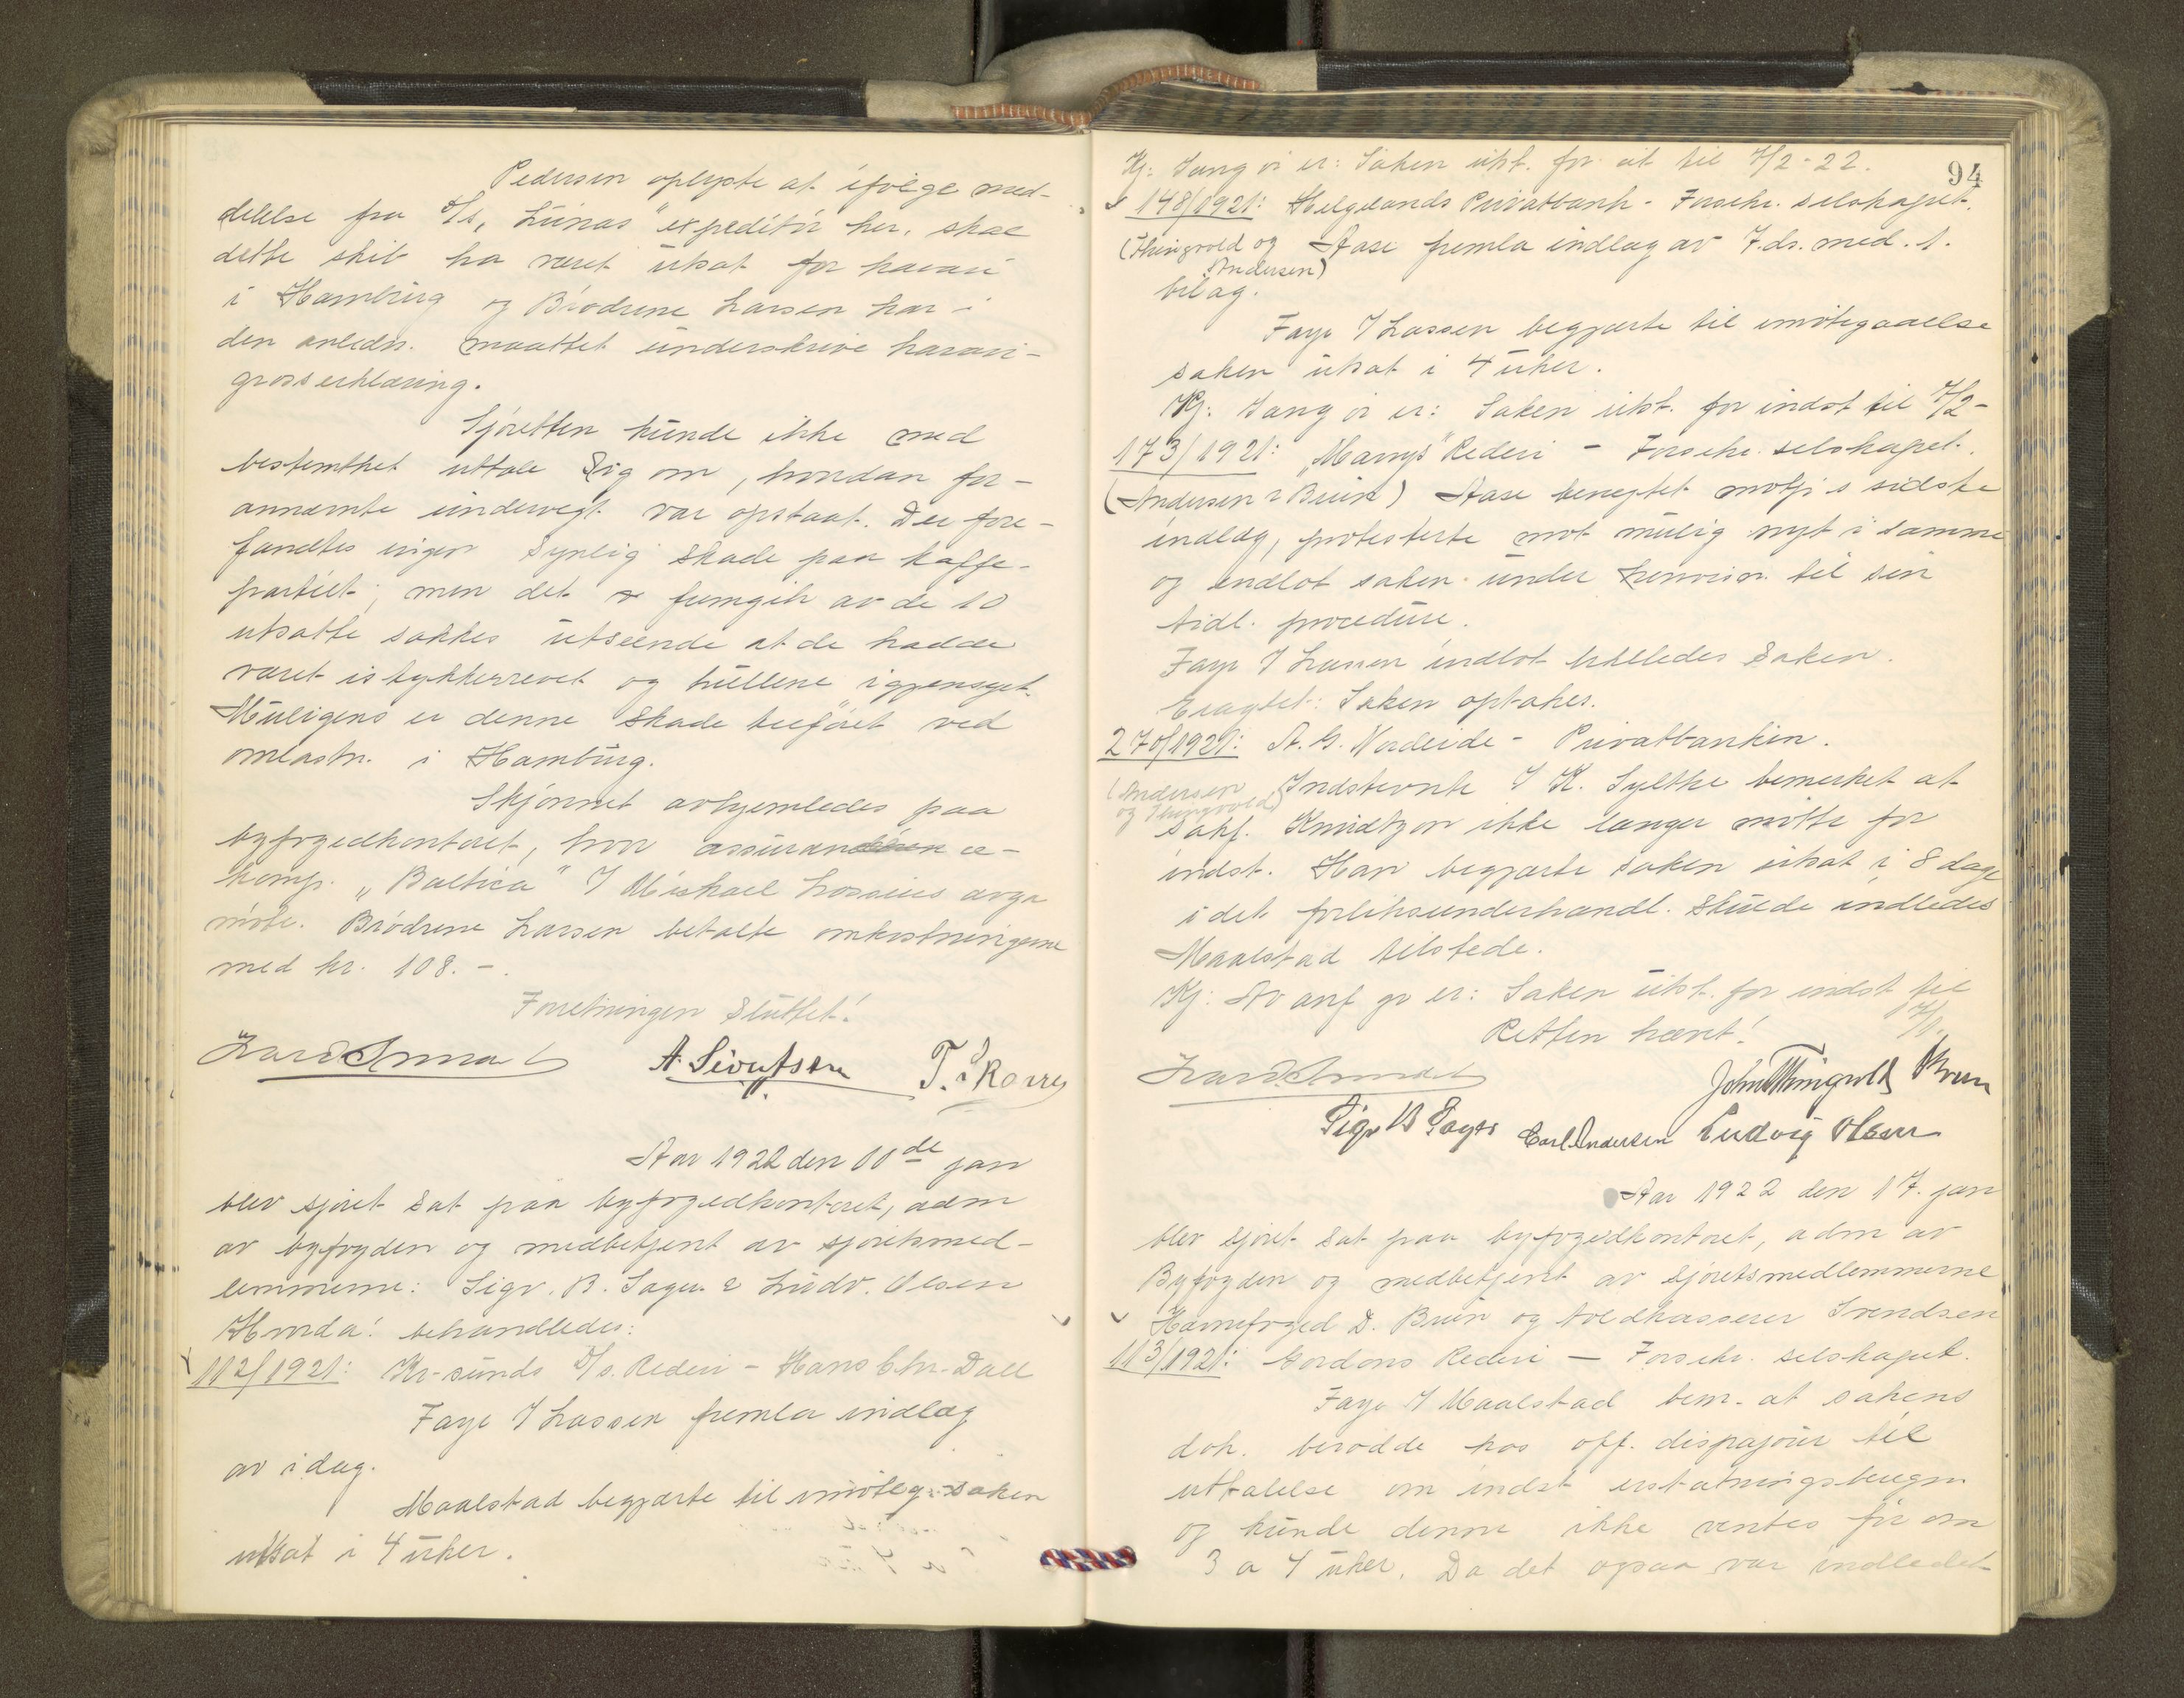 Pedersen oplyste at ifølge med-
delelse fra D/s. "Lunas" expeditør her, skal
dette skib ha været utsat for havari
i Hamburg og Brødrene Larsen har i
den anledn. maattet underskrive havari-
grosserklæring.
Sjøretten kunde ikke med
bestemthet uttale sig om, hvordan for-
annævnte undervegt var opstaat. Der fore-
fandtes ingen synlig skade paa kaffe-
partiet; men det fremgik av de 10
utsatte sækkes utseende at de hadde
været istykkerrevet og hullene igjensyet.
Muligens er denne skade tilføiet ved
omlastn. i Hamburg.
Skjønnet avhjemledes paa
byfogedkontoret, hvor assurance-
komp. "Baltica" V Michael Lossius avga
møte. Brødrene Larsen betalte omkostningerne
med kr. 108.-
Forretningen sluttet!
A. Sivertsen
Aar 1922 den 10de jan
blev sjøret sat paa byfogedkontoret, adm
av byfogden og medbetjent av sjøretsmed-
lemmerne: Sigv. B. Sager & Ludv. Olsen
Hvorda! behandledes:
112/1921: Kr-sunds D/s. Rederi - Hans Chr. Dall
Faye V Lassen fremla indlæg
av idag.
Maalstad begjærte til imøteg. saken
utsat i 4 uker.
94
Kj: Saken utst. for cit til 7/2-22.
148/1921: Helgelands Privatbank - Forsikr. selskapet.
(Thingvold og Aase fremla indlæg av 7.ds. med. 1.
Andersen)
bilag.
Faye V Lassen begjærte til imøtegaaelse
saken utsat i 4 uker.
Kj: Saken utst. for indst til 7/2-
173/1921: "Marrys" Rederi - Forsikr. selskapet.
(Andersen & Bruin) Aase benegtet motp's sidste
indlæg, protesterte mot mulig nyt i samme
og indlot saken under henvisn. til sin
tidl. procedure.
Faye V Lassen indlot likeledes saken.
Eragtet: Saken optakes.
270/1921: A. G. Nordeide - Privatbanken.
(Andersen Indstevnte V K. Syltke bemerket at
og Thingvold)
sakf. Knudtzon ikke længer møtte for
indst. Han begjærte saken utsat i 8 dage
idet forliksunderhandl. skulde indledes
Maalstad tilstede.
Kj: Av anf gr er: Saken utst. for indst til
17/1.
Retten hævet!
John Thingvold Bruun
Sigv B Sager Carl Andersen Ludvig Olsen
Aar 1922 den 17. jan
blev sjøret sat paa byfogedkontoret, adm av
Byfogden og medbetjent av sjøretsmedlemmerne
Havnefoged D. Bruin og toldkasserer Svendsen
113/1921: Gordons Rederi - Forsikr. selskapet.
Faye V Maalstad bem. at sakens
dok. berodde hos off. dispajour til
uttalelse om indst erstatningsberegn
og kunde denne ikke ventes før om
3 a 4 uker. Da det ogsaa var indledet